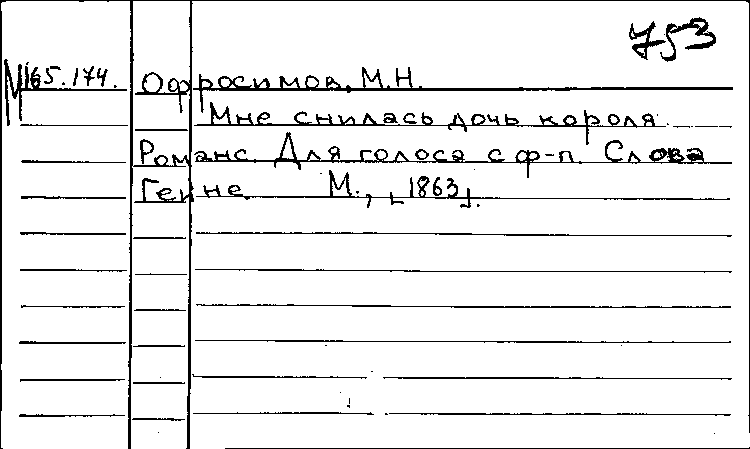 753
М165.174. Офросимов, М.Н.
Мне снилась дочь короля.
Романс. Для голоса с ф-п. Слова
Гейне. М., [1863].